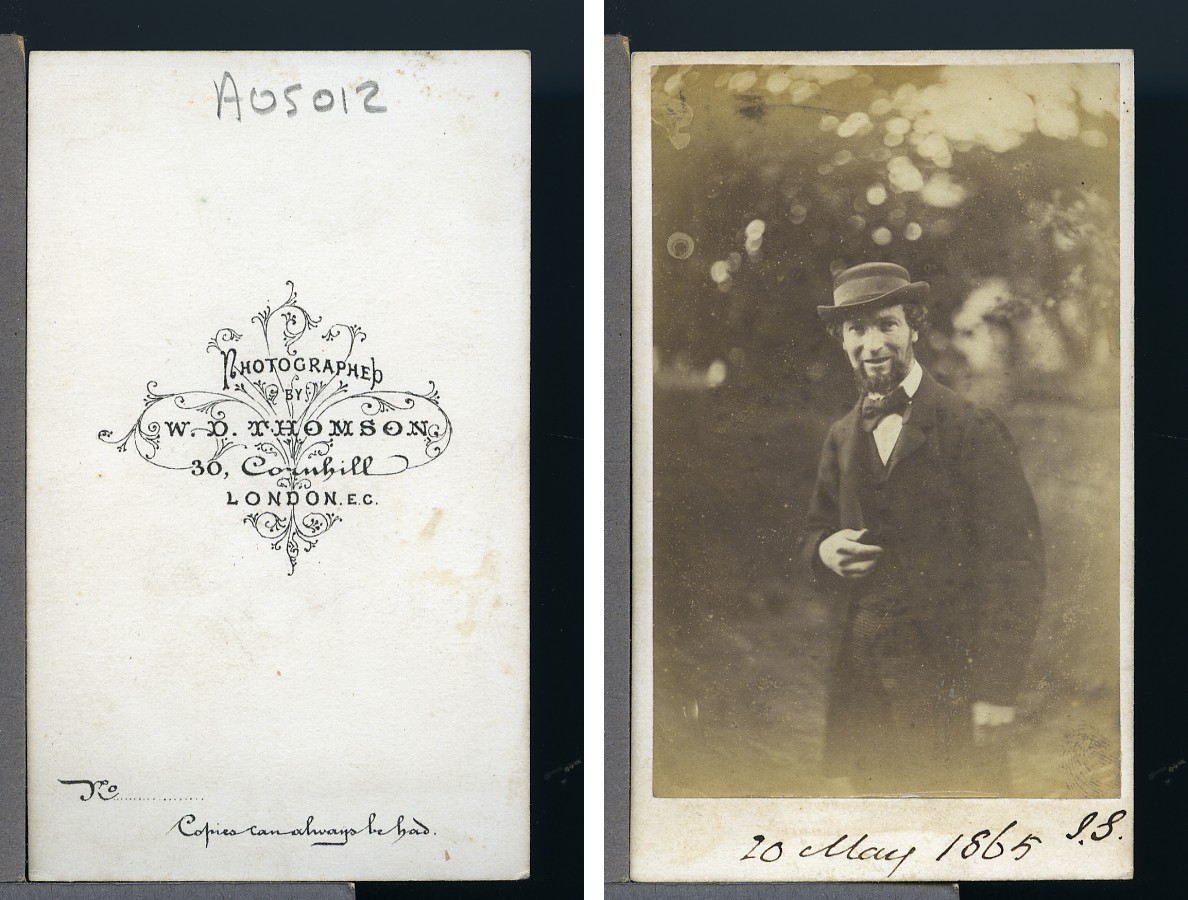 A05012
PHOTOGRAPHED
BY
W. D. THOMSON,
30, Cornhill
LONDON. E.C.
No
Copies can always be had.
20 May 1865